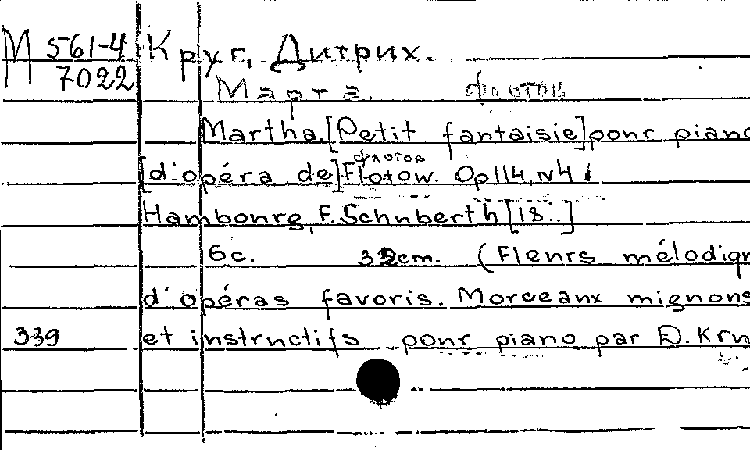 М 561-4 Круг, Дитрих.
7022
Марта. Флотов
Martha [Petit fantaisie] pour piano
Флотов
[d'opéra de] Flotow. Op 114, N4
Hambourg, F. Schuberth [18..]
6 c. 32 cm. (Fleurs mélodiqu
d'opéras favoris. Morceaux mignons
339 et instructifs pour piano par D. Kru